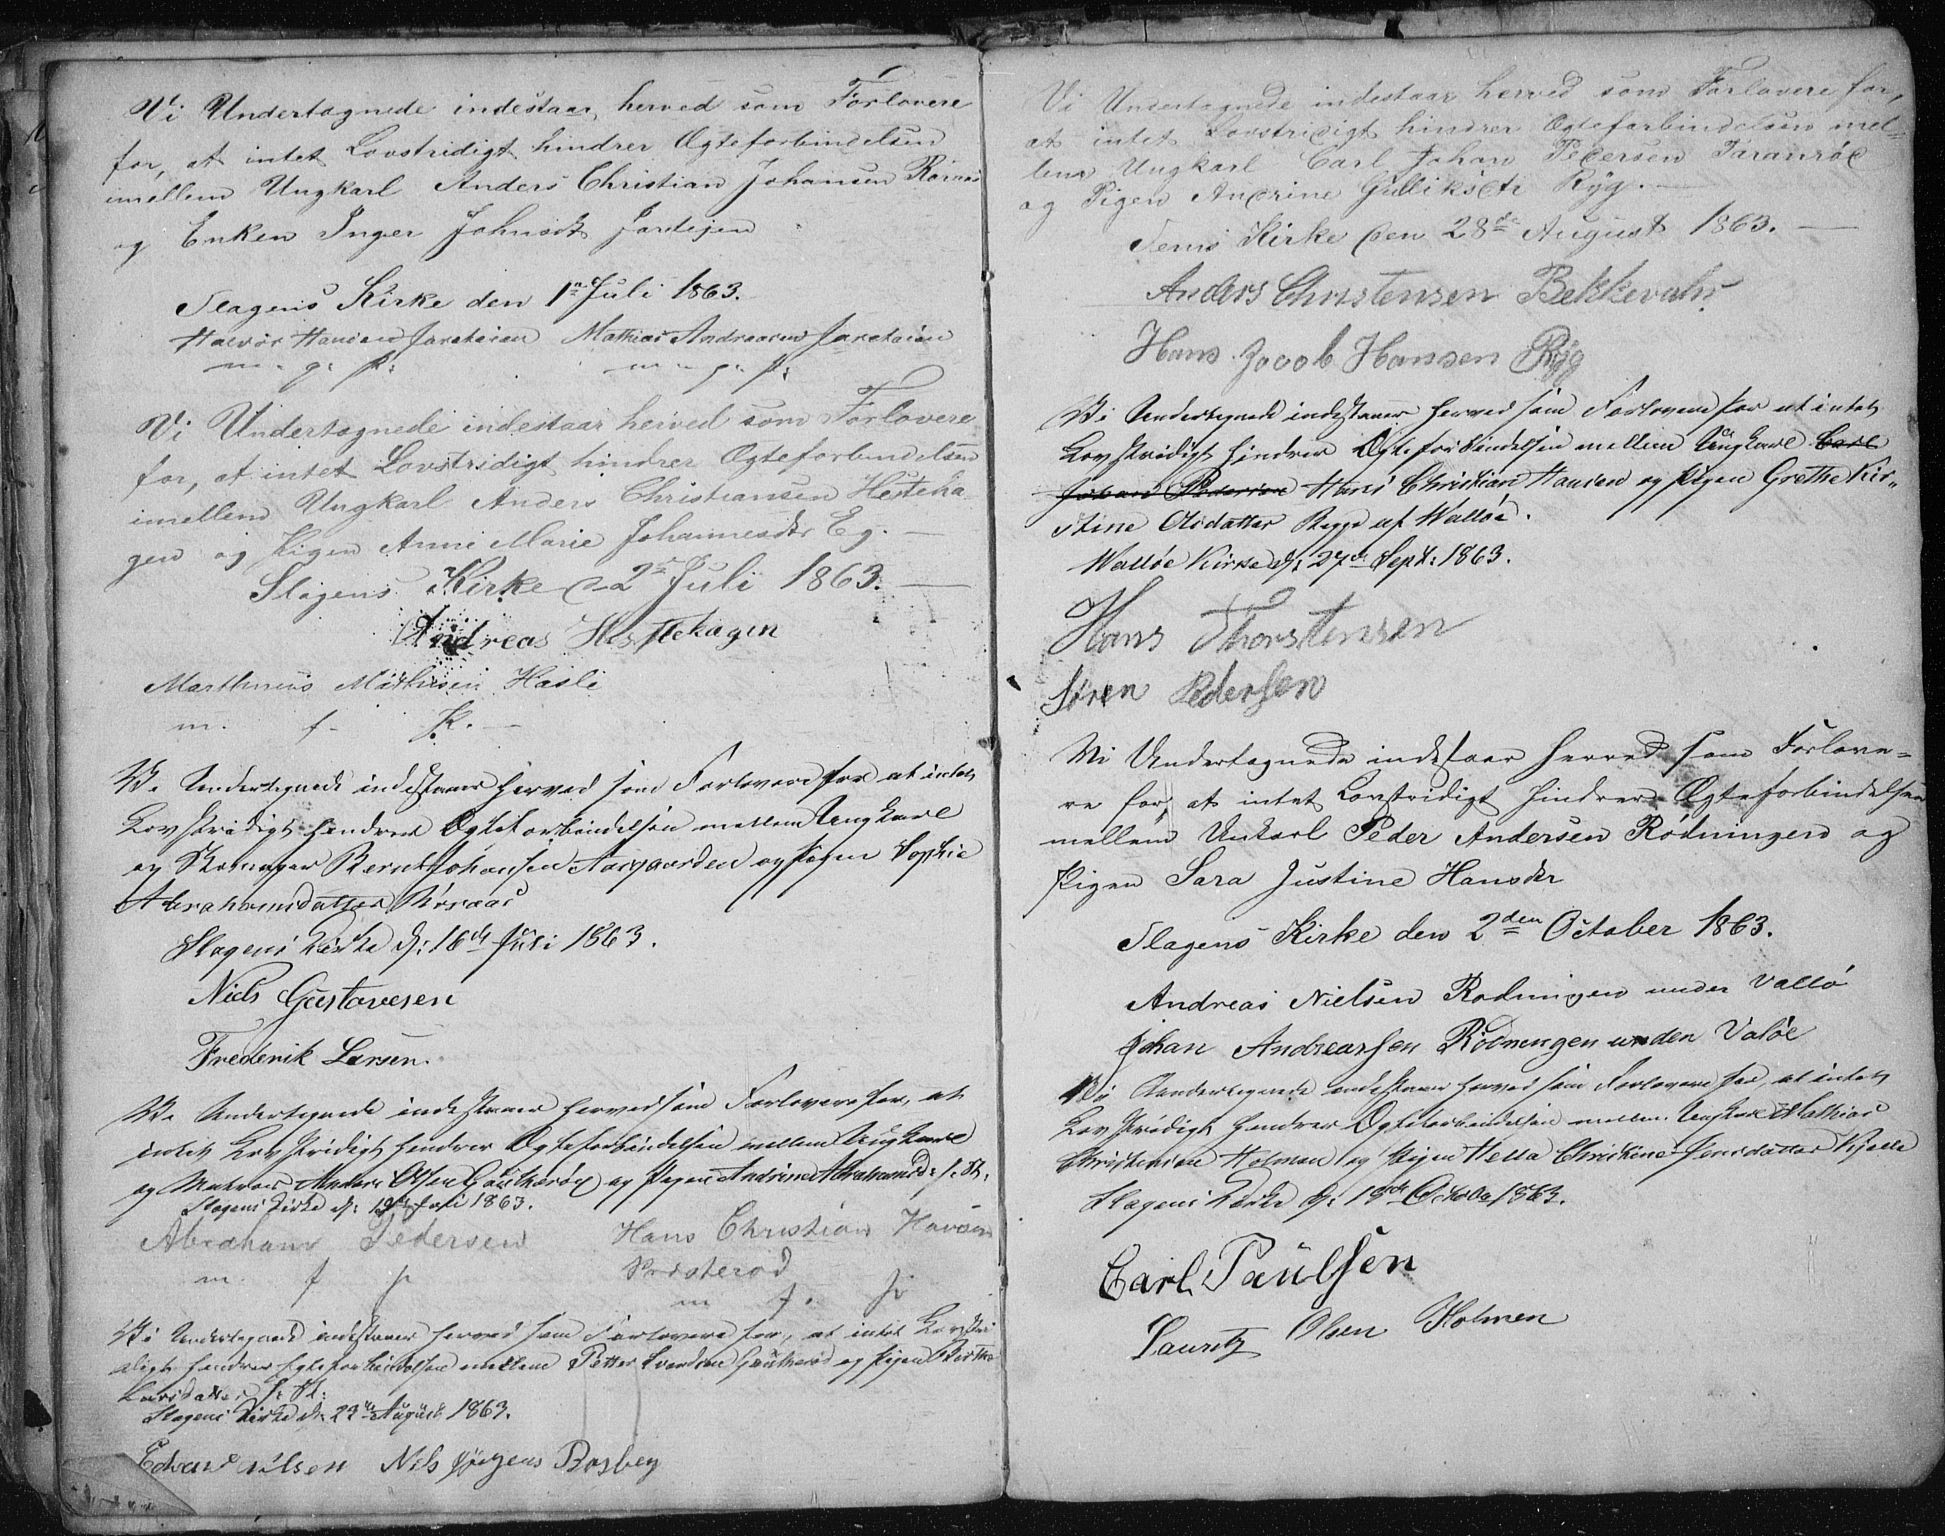 Vi Undertegnede indestaar herved som Forlovere
for, at intet Lovstridigt hindrer Ægteforbindelsen
imellem Ungkarl Anders Christian Johansen
og Enken Inger Johnsdt
Slagens Kirke den 1n Juli 1863.
Halvor Hansen Mathias Andreasen
m. g. P:
m. g. P:
Vi Undertegnede indestaar herved som Forlovere
for, at intet Lovstridigt hindrer Ægteforbindelsen
imellem Ungkarl Anders Christiansen Hesteha
gen og Pigen Anne Marie Johannesdtr Eg. —
Slagens Kirke d 2n Juli 1863. —
Andreas Hestehagen
Marthinius Mathisen Hasle
m. f. P. —
Vi Undertegnede indestaaer herved som Forlovere for at intet
Lovstridigt hindrer Ægteforbindelsen mellem Ungkarl
og Skomager Bernt Johansen Aasgaarden og Pigen Sophie
Abrahamsdatter Roraas
Slagens Kirke d: 16de Juli 1863.
Niels Gustavesen
Frederik Larsen.
Vi Undertegnede indestaaer herved som Forlovere for, at
intet Lovstridigt hindrer Ægteforbindelsen mellem Ungkarl
og Matros Anders Olsen og Pigen Andrine Abrahamsd:
Slagens Kirke d: Juli 1863.
Abraham Pedersen Hans Christian Hansen
m f p Presterød
m f. p
Vi Undertegnede indestaaer herved som Forlovere for, at intet Lovstri
digt hindrer Ægteforbindelsen mellem Petter og Pigen Berthe
Larsdatter
Slagens Kirke d: 29de August 1863.
Edvard Nilsen Nils Jørgens Basberg
Vi Undertegnede indestaar herved som Forlovere for,
at intet Lovstridigt hindrer Ægteforbindelsen mel=
lem Ungkarl Carl Johan Pedersen Taranrød
og Pigen Andrine Gulliksdt Ryg. —
Sems Kirke den 28de August 1863. —
Anders Christensen Bekkevahr
Hans Jacob Hansen Ryg
Vi Undertegnede indestaaer herved som Forlovere for at intet
Lovstridigt hindrer Ægteforbindelsen mellem Ungkarl Carl
Johan Pedersen Hans Christian Hansen og Pigen Grethe Kir„
stine Olsdatter Begge af Walløe.
Walløe Kirke d: 27de Sept: 1863.
Hans Thorstensen
Søren Pedersen
Vi Undertegnede indestaar herved som Forlove=
re for, at intet Lovstridigt hindrer Ægteforbindelsen
mellem Unkarl Peder Andersen Rødningen og
Pigen Sara Justine Hansdtr
Slagens Kirke den 2den October 1863.
Andreas Nielsen Rodningen under Vallö
Johan Andreassen Rödnengen unden Valöe
Vi Undertegnede indestaaer herved som Forlovere for at intet
Lovstridigt hindrer Ægteforbindelsen mellem Ungkarl Mathias
Christensen Holmen og Pigen Hella Christine Jensdatter
Slagens Kirke d: October 1863.
Carl Paulsen
Lauritz Olsen Holmen